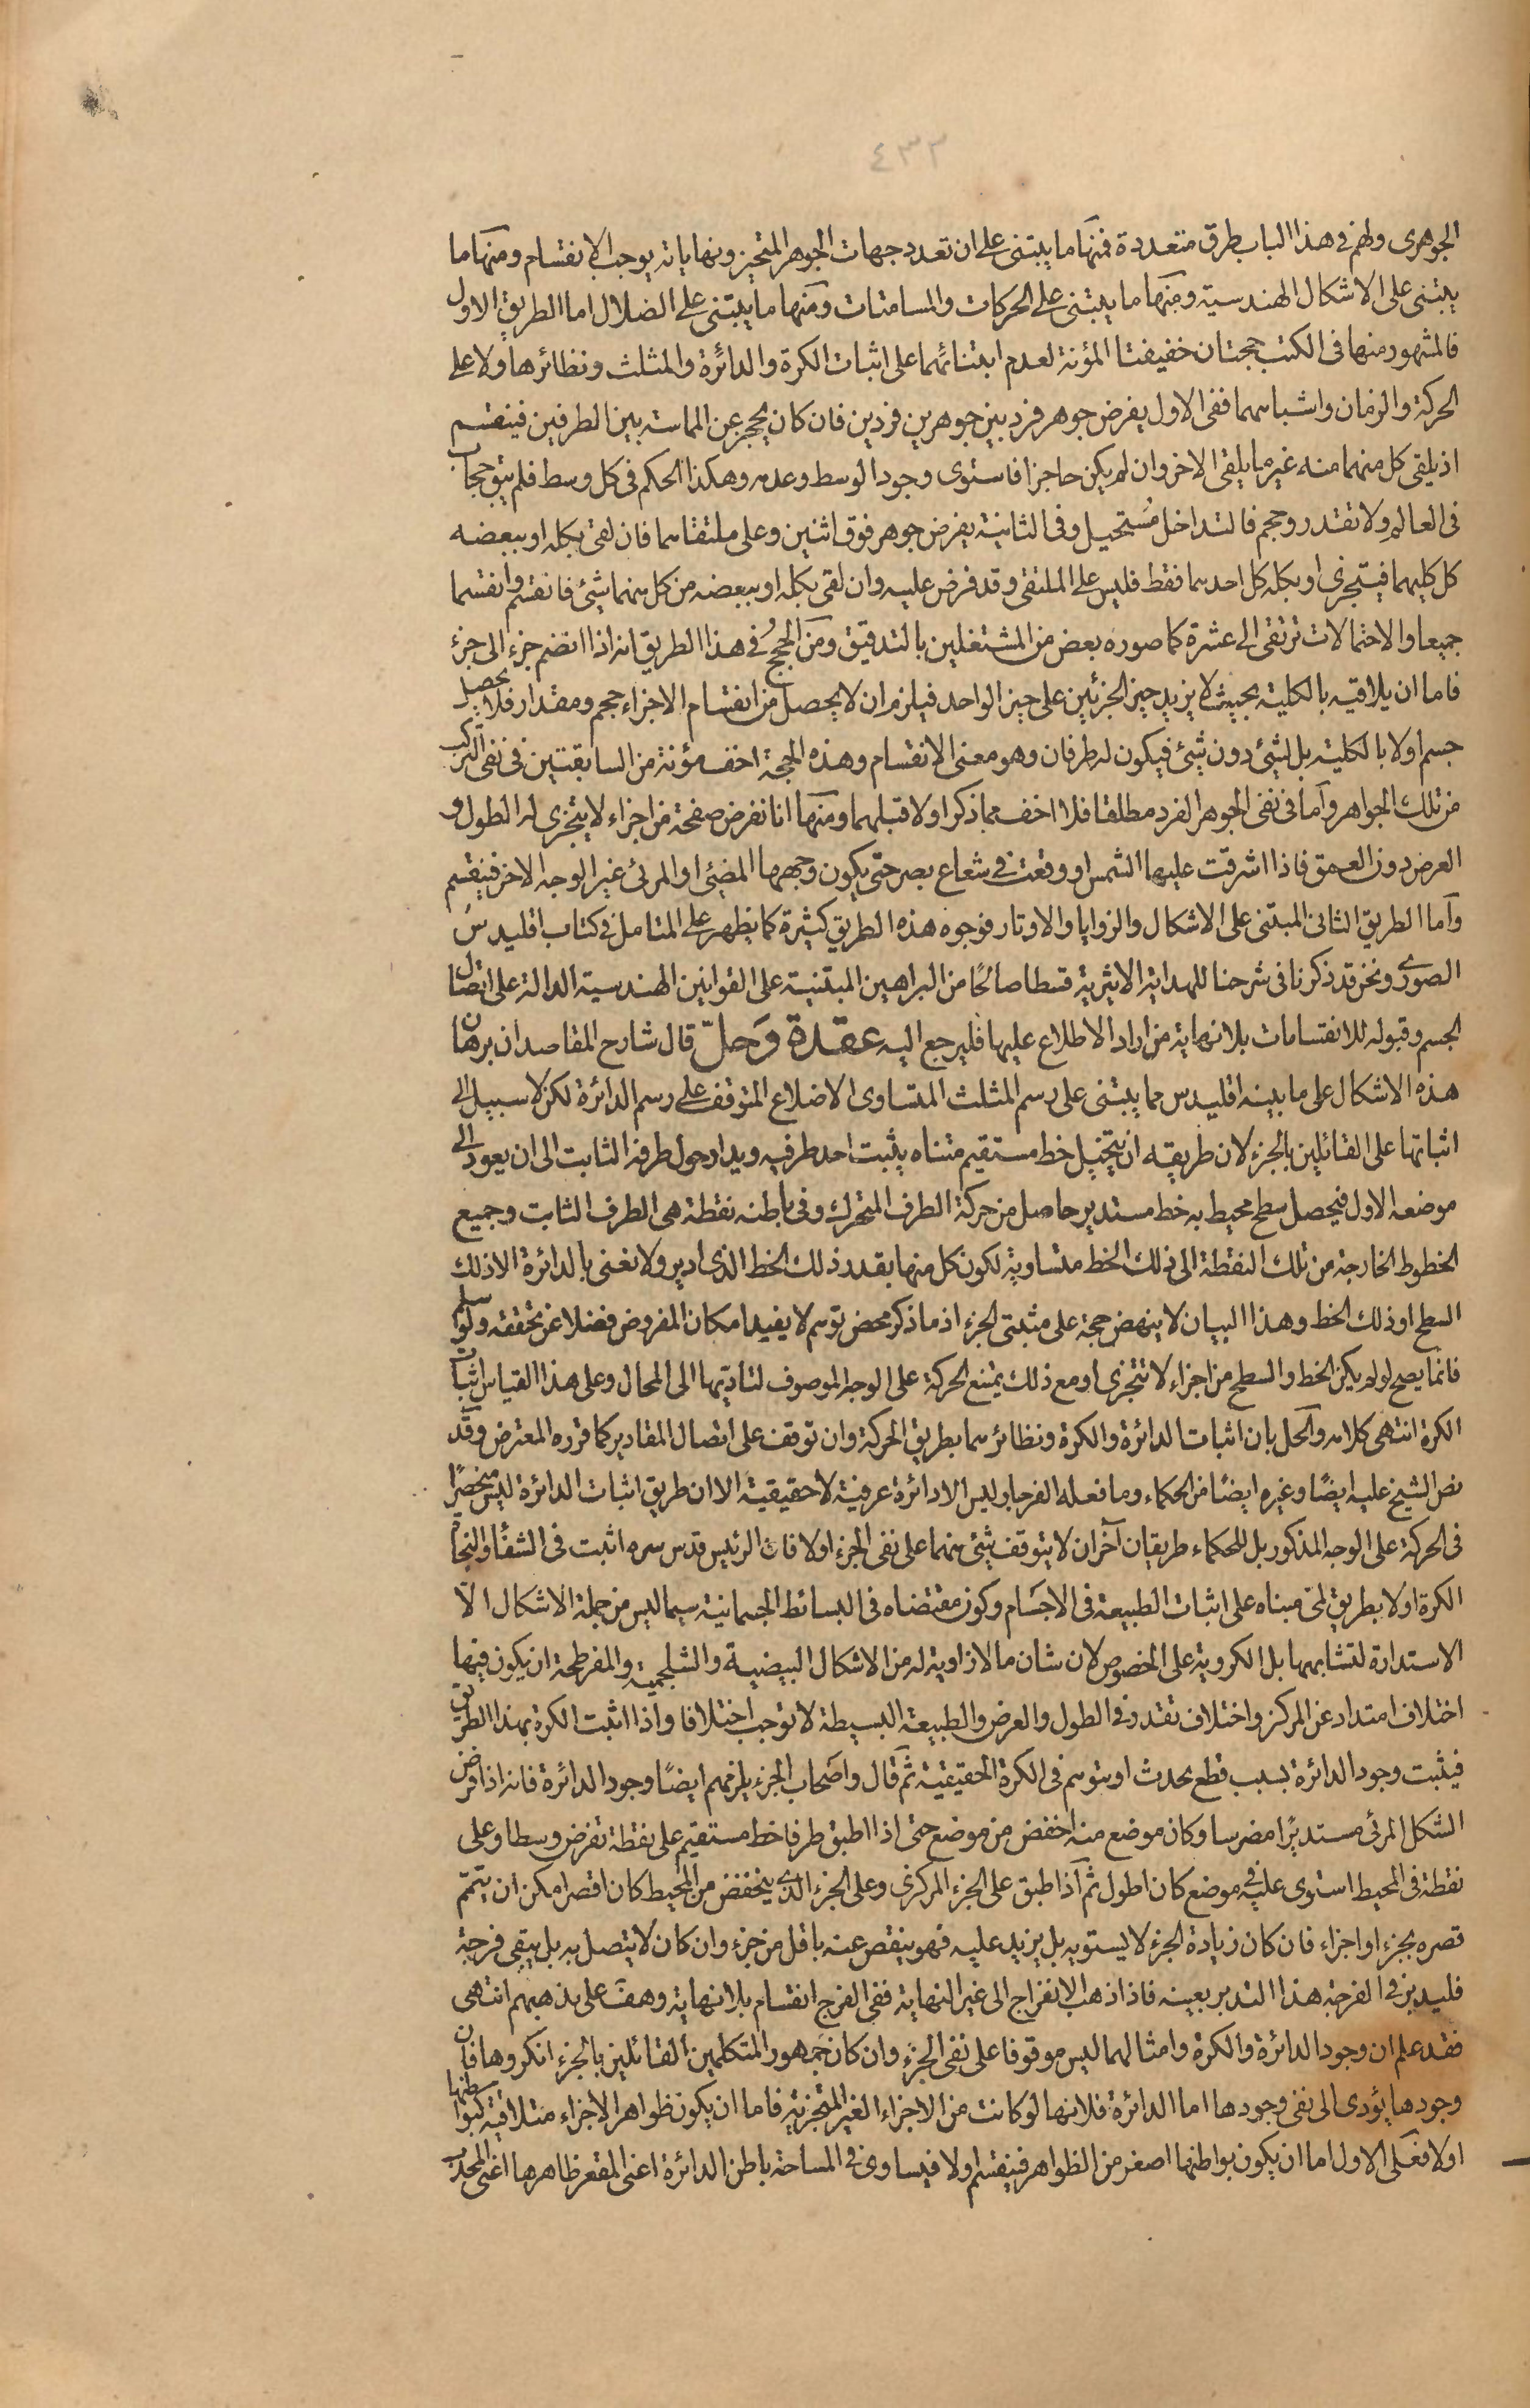 ٤٣٢
الجوهرى ولهم فى هذا الباب طرق متعددة فمنها ما يبتنى على ان تعدد جهات الجوهر المتحيز ونهاياته يوجب الانقسام ومنها ما
يبتنى على الاشكال الهندسية ومنها ما يبتنى على الحركات والمسامتات ومنها ما يبتنى على الضلال اما الطريق الاول
فالمشهور منها فى الكتب حجتان خفيفتا المؤنة لعدم ابتنائهما على اثبات الكرة والدائرة والمثلث ونظائرها ولا على
الحركة والزمان واشباههما ففى الاول يفرض جوهر فرد بين جوهرين فردين فان كان يحجز عن المماسة بين الطرفين فينقسم
اذ يلقى كل منهما منه غير ما يلقى الاخر وان لم يكن حاجزا فاستوى وجود الوسط وعدمه وهكذا الحكم فى كل وسط فلم يبق حجاب
فى العالم ولا تقدر وحجم فالتداخل مستحيل وفى الثانية يفرض جوهر فوق اثنين وعلى ملتقاهما فان لقى بكله او ببعضه
كل كليهما فيتجزى او بكله كل احدهما فقط فليس على الملتقى وقد فرض عليه وان لقى بكله او ببعضه من كل منهما شئ فانقسم وانقسما
جميعا والاحتمالات ترتقى الى عشرة كما صوره بعض من المشتغلين بالتدقيق ومن الحجج فى هذا الطريق انه اذا انضم جزء الى جزء
فاما ان يلاقيه بالكلية بحيث لا يزيد حيز الجزئين على حيز الواحد فيلزم ان لا يحصل من انقسام الاجزاء حجم ومقدار فلا يحصل
جسم اولا بالكلية بل لشئ دون شئ فيكون له طرفان وهو معنى الانقسام وهذه الحجة اخف مؤنة من السابقتين فى نفى التركب
من تلك الجواهر وأما فى نفى الجوهر الفرد مطلقا فلا اخف مما ذكر اولا قبلهما ومنها انا نفرض صفحة من اجزاء لا يتجزى له الطول و
العرض دون العمق فاذا اشرقت عليها الشمس او وقعت فى شعاع بصر حتى يكون وجهها المضئ او المرئى غير الوجه الاخر فينقسم
وأما الطريق الثانى المبتنى على الاشكال والزوايا والاوتار فوجوه هذه الطريق كثيرة كما يظهر على المتامل فى كتاب اقليدس
الصورى ونحن قد ذكرنا فى شرحنا للهداية الاثيرية قسطا صالحًا من البراهين المبتنية على القوانين الهندسية الدالة على اتصال
الجسم وقبوله للانقسامات بلا نهاية من اراد الاطلاع عليها فليرجع اليه عقدة وَحلّ قال شارح المقاصد ان برهان
هذه الاشكال على ما بينه اقليدس مما يبتنى على رسم المثلث المتساوى الاضلاع المتوقف على رسم الدائرة لكن لا سبيل الى
اثباتها على القائلين بالجزء لان طريقه ان يتخيل خط مستقيم متناه يثبت احد طرفيه ويدار حول طرفه الثابت الى ان يعود الى
موضعه الاول فيحصل سطح محيط به خط مستدير حاصل من حركة الطرف المتحرك وفى باطنه نقطة هى الطرف الثابت وجميع
الخطوط الخارجة من تلك النقطة الى ذلك الخط متساوية لكون كل منها بقدر ذلك الخط الذى ادير ولا نعنى بالدائرة الا ذلك
السطح او ذلك الخط وهذا البيان لا ينهض حجة على مثبتى الجزء اذ ما ذكر محض توهم لا يفيد امكان المفروض فضلا عن تحققه ولو سلم
فانما يصح لو لم يكن الخط والسطح من اجزاء لا تتجزى او مع ذلك يمتنع الحركة على الوجه الموصوف لتاديتها الى المحال وعلى هذا القياس اثبات
الكرة انتهى كلامه والحل بان اثبات الدائرة والكرة ونظائرهما بطريق الحركة وان توقف على اتصال المقادير كما قرره المعترض وقد
نص الشيخ عليه ايضًا وغيره ايضًا من الحكماء وما فعله الفرجار ليس الا دائرة عرفية لا حقيقية الا ان طريق اثبات الدائرة ليس منحصرًا
فى الحركة على الوجه المذكور بل للحكماء طريقان آخران لا يتوقف شئ منهما على نفى الجزء اولا فان الرئيس قدس سره اثبت فى الشفاء والنجاة
الكرة اولا بطريق لمى مبناه على اثبات الطبيعة فى الاجسَام وكون مقتضاه فى البسائط الجسمانية سيما ليس من جملة الاشكال الا
الاستدارة لتشابهها بل الكروية على الخصوص لان شان ما لا زاوية له من الاشكال البيضية والشلجمية والمفرطحة ان يكون فيها
اختلاف امتداد عن المركز واختلاف تقدر فى الطول والعرض والطبيعة البسيطة لا توجب اختلافا واذا اثبت الكرة بهذا الطريق
فيثبت وجود الدائرة بسبب قطع يحدث او يتوهم فى الكرة الحقيقية ثم قال واصحَاب الجزء يلزمهم ايضًا وجود الدائرة فانه اذا فرض
الشكل المرئى مستديرًا مضرسا وكان موضع منه اخفض من موضع حتى اذا اطبق طرفا خط مستقيم على نقطة تفرض وسطا وعلى
نقطة فى المحيط استوى عليه فى موضع كان اطول ثم اذا طبق على الجزء المركزى وعلى الجزء الذى ينخفض من المحيط كان اقصر امكن ان يتمّم
قصره بجزء او اجزاء فان كان زيادة الجزء لا يستويه بل يزيد عليه فهو ينقص عنه باقل من جزء وان كان لا يتصل به بل يبقى فرجة
فليدبر فى الفرجة هذا التدبر بعينه فاذا ذهب الانفراج الى غير النهاية ففى الفرج انقسام بلا نهاية وهف على مذهبهم انتهى
فقد علم ان وجود الدائرة والكرة وامثالهما ليس موقوفا على نفى الجزء وان كان جمهور المتكلمين القائلين بالجزء انكروها فان
وجودها يؤدى الى نفى وجودها اما الدائرة فلانها لو كانت من الاجزاء الغير المتجزية فاما ان يكون ظواهر الاجزاء متلاقية كبواطنها
اولا فعلى الاول اما ان يكون بواطنها اصغر من الظواهر فينقسم اولا فيساوى فى المساحة باطن الدائرة اعنى المقعر ظاهرها اعنى المحدب